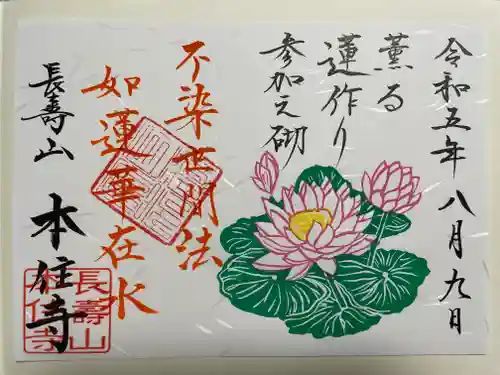 令和五年 八月九日
薫る
蓮作り
参加之砌
不染世間法
如蓮華在水
長壽山
本住寺
長壽山
本住寺